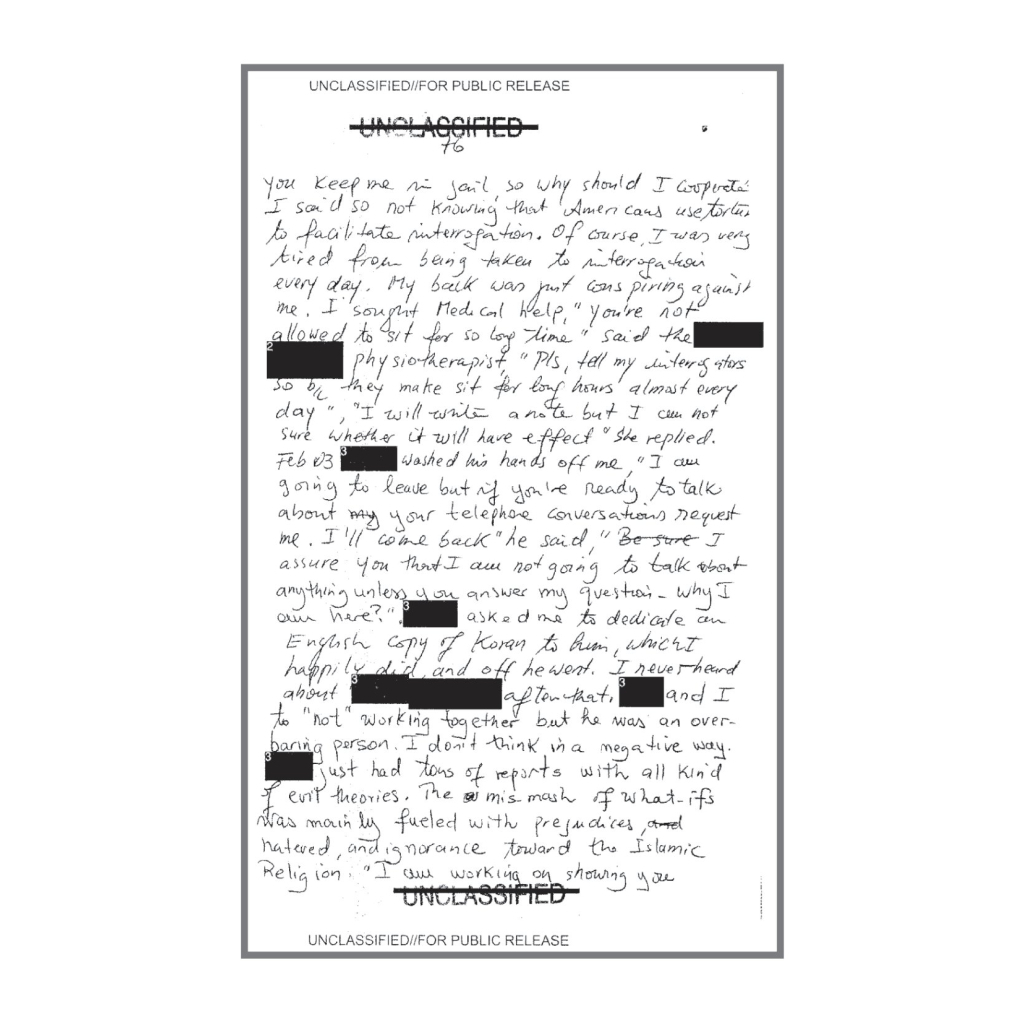 UNCLASSIFIED//FOR PUBLIC RELEASE
UNCLASSIFIED
76
you keep me in jail, so why should I cooperate
I said so not knowing that Americans use torture
to facilitate interrogation. Of course, I was very
tired from being taken to interrogation
every day. My back was just conspiring against
me. I sought Medical help, "You're not
allowed to sit for so long time" said the
2 physiotherapist, "Pls, tell my interrogators
so b/c they make sit for long hours almost every
day", "I will write a note but I am not
sure whether it will have effect" She replied.
Feb 03 3 washed his hands off me, "I am
going to leave but if you're ready to talk
about my your telephone conversations request
me. I'll come back" he said, "Be sure I
assure you that I am not going to talk about
anything unless you answer my question - why I
am here?". 3 asked me to dedicate an
English copy of Koran to him, which I
happily did, and off he went. I never heard
about 3 after that. 3 and I
to "not" working together but he was an over-
baring person. I don't think in a negative way.
3 just had tons of reports with all kind
of evil theories. The mis mash of what-ifs
was mainly fueled with prejudices, and
hatered, and ignorance toward the Islamic
Religion. "I am working on showing you
UNCLASSIFIED
UNCLASSIFIED//FOR PUBLIC RELEASE